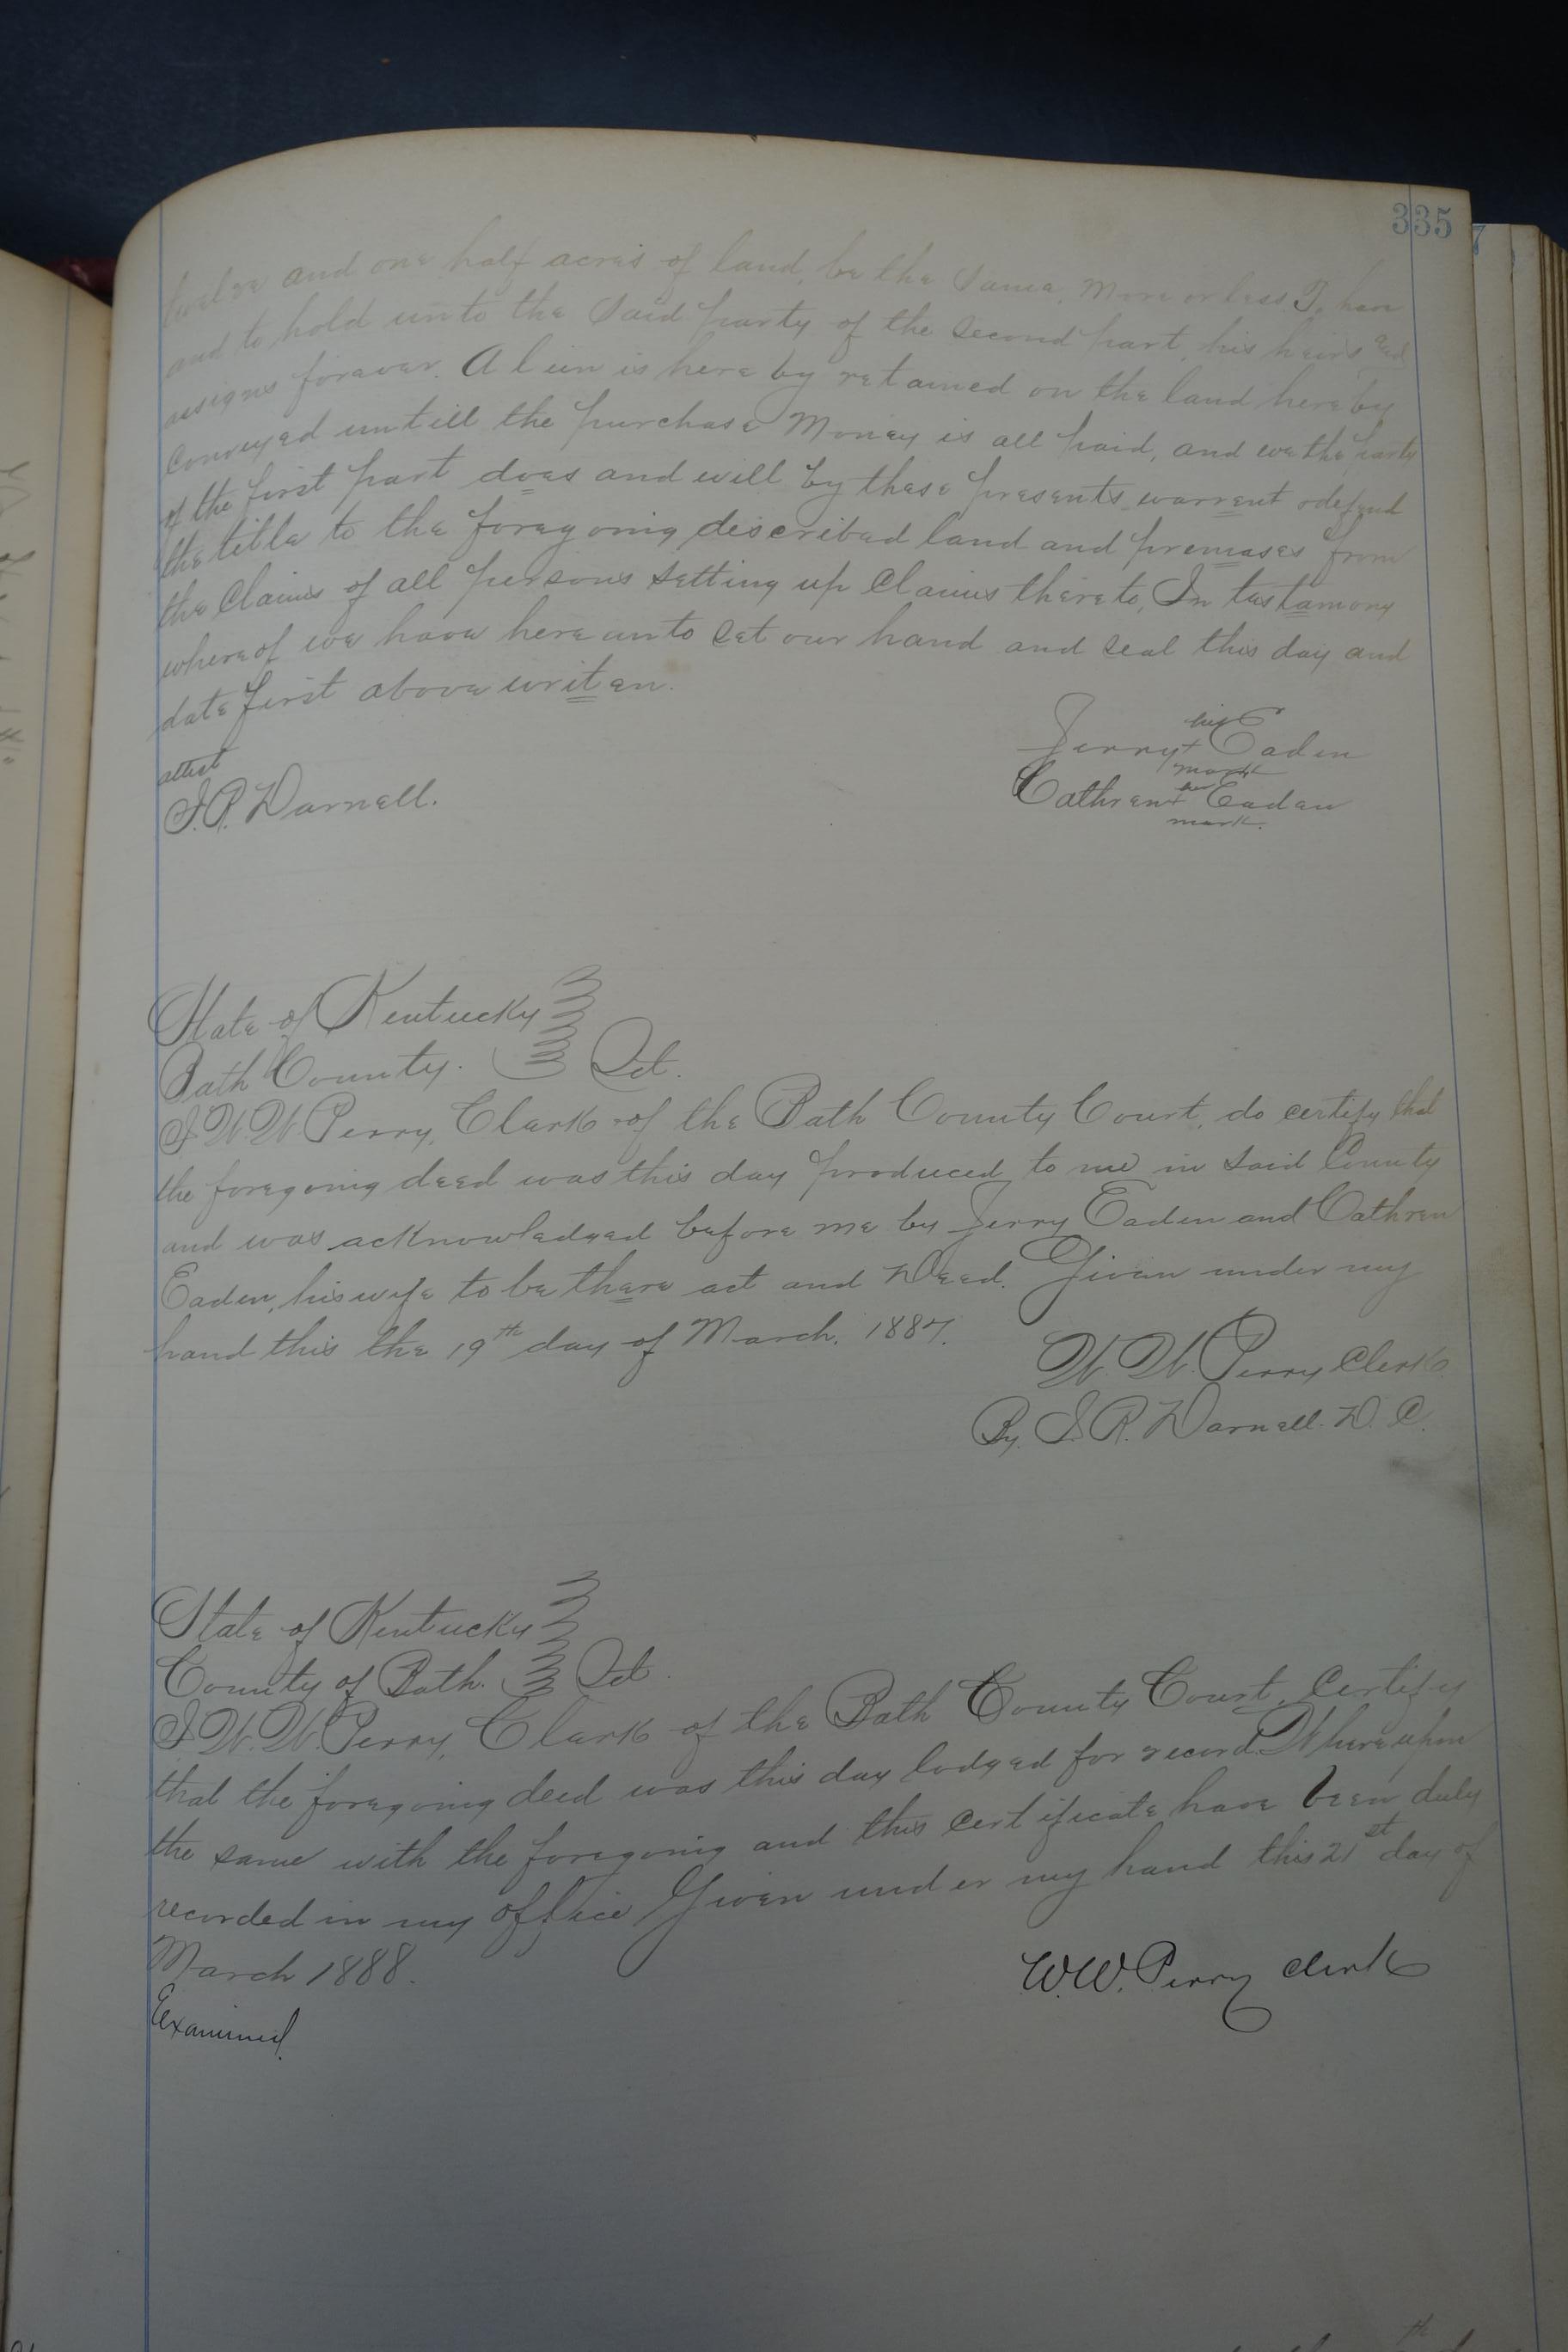 335
twelve and one half acres of land, be the Same, More or less To have
and to hold unto the Said party of the Second part, his heirs and
assigns forever. A lien is here by retained on the land here by
Conveyed untill the purchase Money is all paid, and we the party
of the first part does and will by these presents warrent & defend
the title to the foregoing described land and premases from
the Claims of all persons Setting up Claims there to, In testamony
where of we have here unto Set our hand and Seal this day and
date first above writen.
his
Jerry + Eaden
mark
attest
her
J. R. Darnell.
Cathren + Eaden
mark.
State of Kentucky
Bath County. Sct.
I W. W Perry, Clerk of the Bath County Court, do certify that
the foregoing deed was this day produced to me in Said County
and was acknowledged before me by Jerry Eaden and Cathren
Eaden, his wife to be there act and Deed. Given under my
hand this the 19th day of March. 1887.
W. W. Perry Clerk
By. J. R. Darnell. D. C.
State of Kentucky
County of Bath. Sct.
I W. W. Perry, Clerk of the Bath County Court, Certify
that the foregoing deed was this day lodged for record. Whereupon
the same with the foregoing and this Certificate have been duly
recorded in my office Given under my hand this 21st day of
March 1888.
W. W. Perry Clerk
Examined.